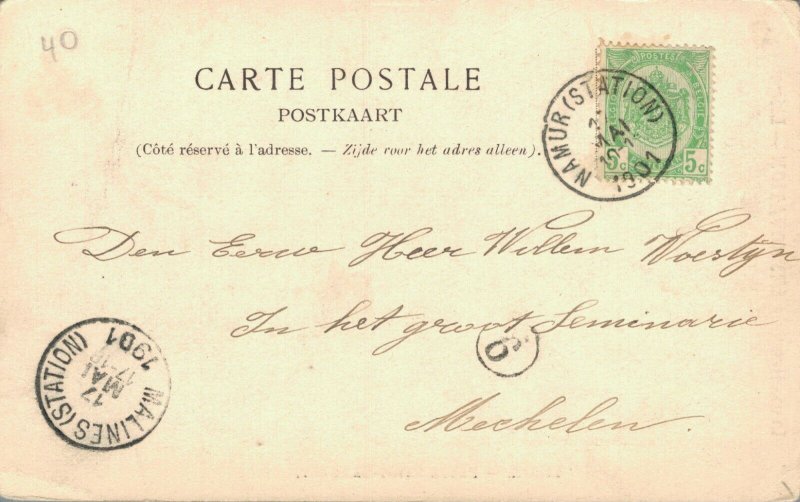 40
CARTE POSTALE
POSTKAART
(Côté réservé à l'adresse. — Zijde voor het adres alleen).
POSTES
5c 5c
NAMUR (STATION)
MAI
1901
Den Eerw Heer Willem Woestyn
In het groot Seminarie
6
Mechelen.
MALINES (STATION)
17
MAI
1901